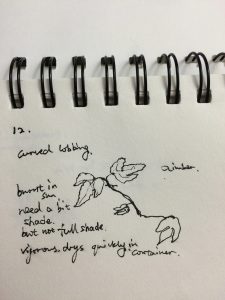 12.
curved lobbing.
climber.
burnt in
sun
need a bit
shade.
but not full shade.
vigorous. drys quickly in container.